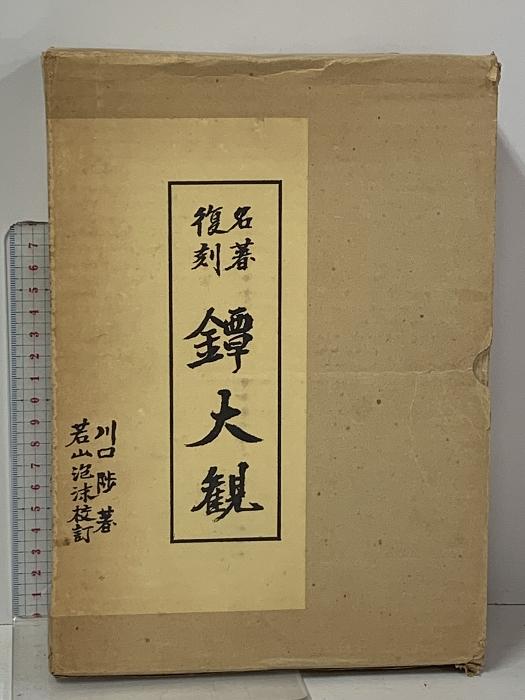 名著
復刻
鐔大観
川口陟著
若山泡沫校訂